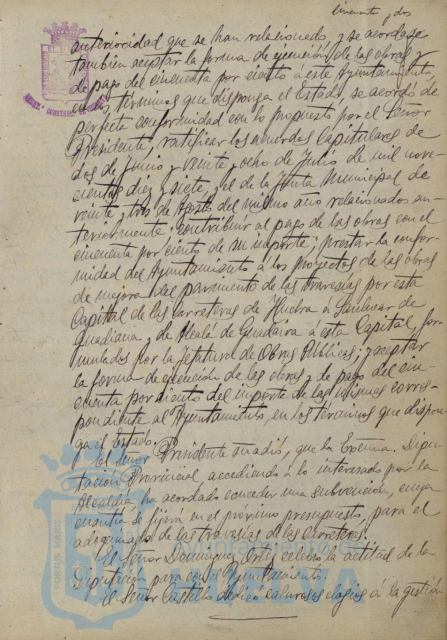 cincuenta y dos
anterioridad que se han relacionado, y se acordase
tambien aceptar la forma de ejecución de las obras y
de pago del cincuenta por ciento a este Ayuntamiento,
en los términos que disponga el Estado, se acordó de
perfecta conformidad con lo propuesto por el Señor
Presidente, ratificar los acuerdos Capitulares de
dos de Junio y veinte y ocho de Julio de mil nove-
cientos diez y siete, y el de la Junta Municipal de
veinte y tres de Agosto del mismo año relacionados an-
teriormente; contribuir al pago de las obras con el
cincuenta por ciento de su importe; prestar la confor-
midad del Ayuntamiento á los proyectos de las obras
de mejora del pavimento de las travesías por esta
Capital de las carreteras de Huelva á Sanlucar de
Guadiana y de Alcalá de Guadaira á esta Capital, for-
mulados por la Jefatura de Obras Públicas; y aceptar
la forma de ejecución de las obras y de pago del cin-
cuenta por ciento del importe de las mismas corres-
pondiente al Ayuntamiento, en los términos que dispon-
ga el Estado.
El Señor Presidente añadió, que la Excma. Dipu-
tación Provincial, accediendo á lo interesado por la
Alcaldía, ha acordado conceder una subvención, cuya
cuantía se fijará en el próximo presupuesto, para el
adoquinado de las travesías de las carreteras.
El Señor Dominguez Ortiz celebró la actitud de la
Diputación para con el Ayuntamiento.
El Señor Castillo dedicó calurosos elogios á la gestión